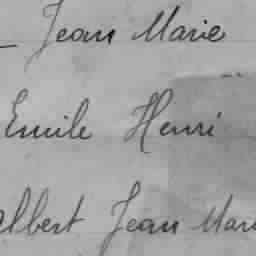 Jean Marie
Emile Henri
Albert Jean Mari